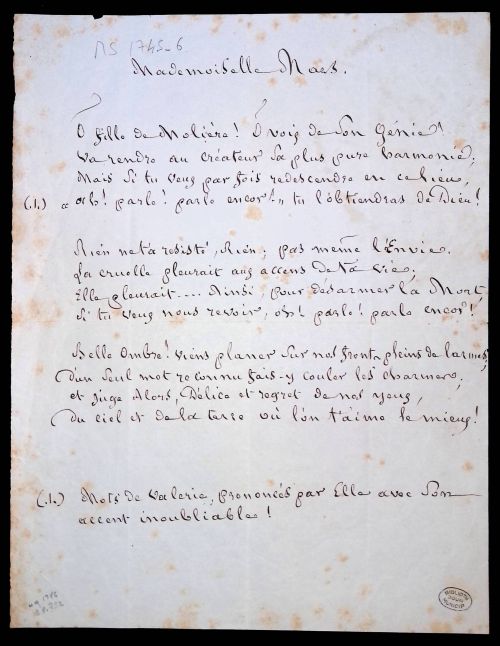 MS 1745-6
Mademoiselle Mars.
O fille de Molière! O voix de son Génie!
Va rendre au créateur sa plus pure harmonie;
Mais si tu veux par fois redescendre en ce lieu,
(.1.) « ah! parle! parle encor! » tu l'obtiendras de Dieu!
Rien ne t'a résisté, Rien; pas même l'Envie.
La cruelle pleurait aux accens de ta vie;
Elle pleurait.... Ainsi, pour désarmer la Mort
Si tu veux nous revoir, oh! parle! parle encor!
Belle Ombre! viens planer sur nos fronts pleins de larmes,
D'un seul mot reconnu fais-y couler les charmes,
et juge Alors, Délice et regret de nos yeux,
Du ciel et de la terre où l'on t'aime le mieux!
(.1.) Mots de Valérie, prononcés par Elle avec Son
accent inoubliable!